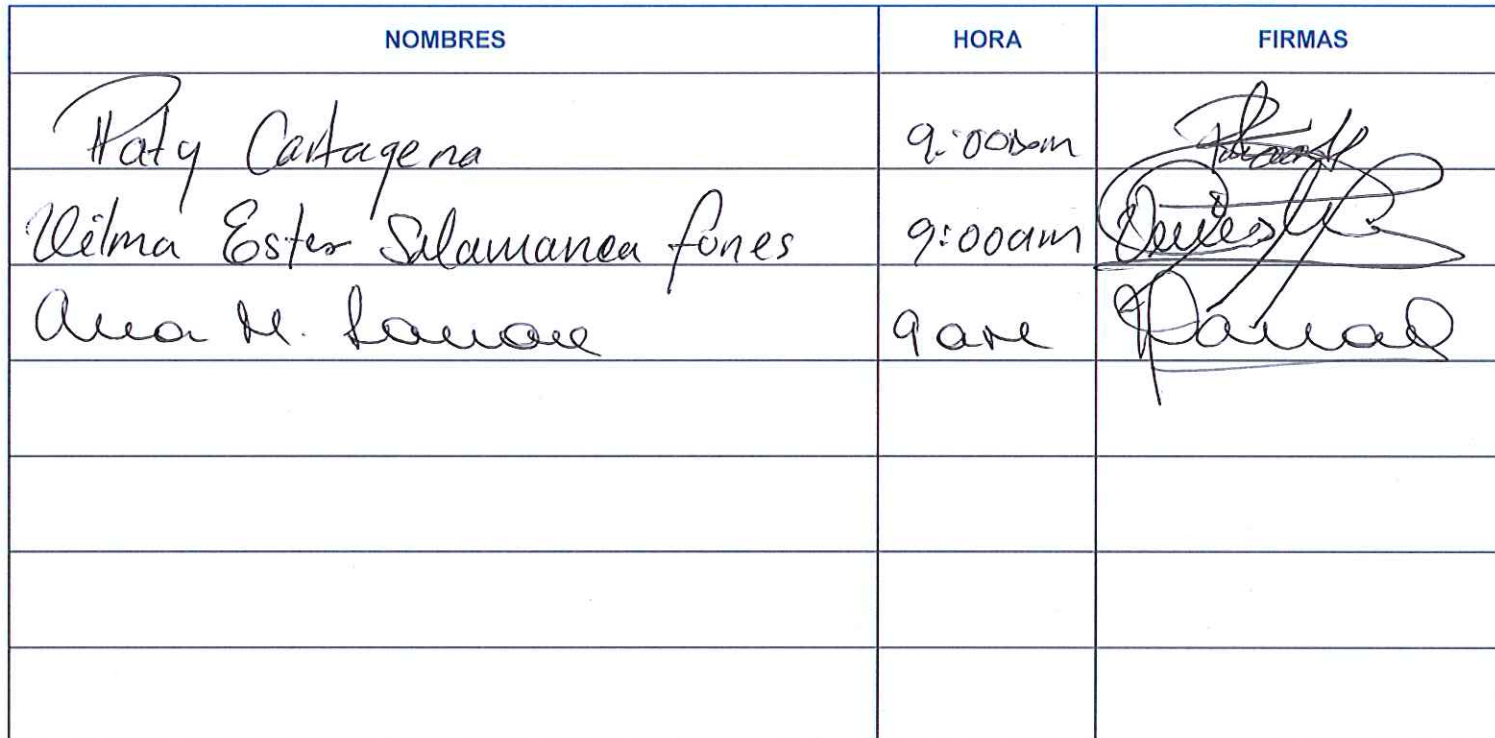 NOMBRES HORA FIRMAS
Paty Cartagena 9:00am
Vilma Ester Salamanca fones 9:00am
Ana M. 9 am